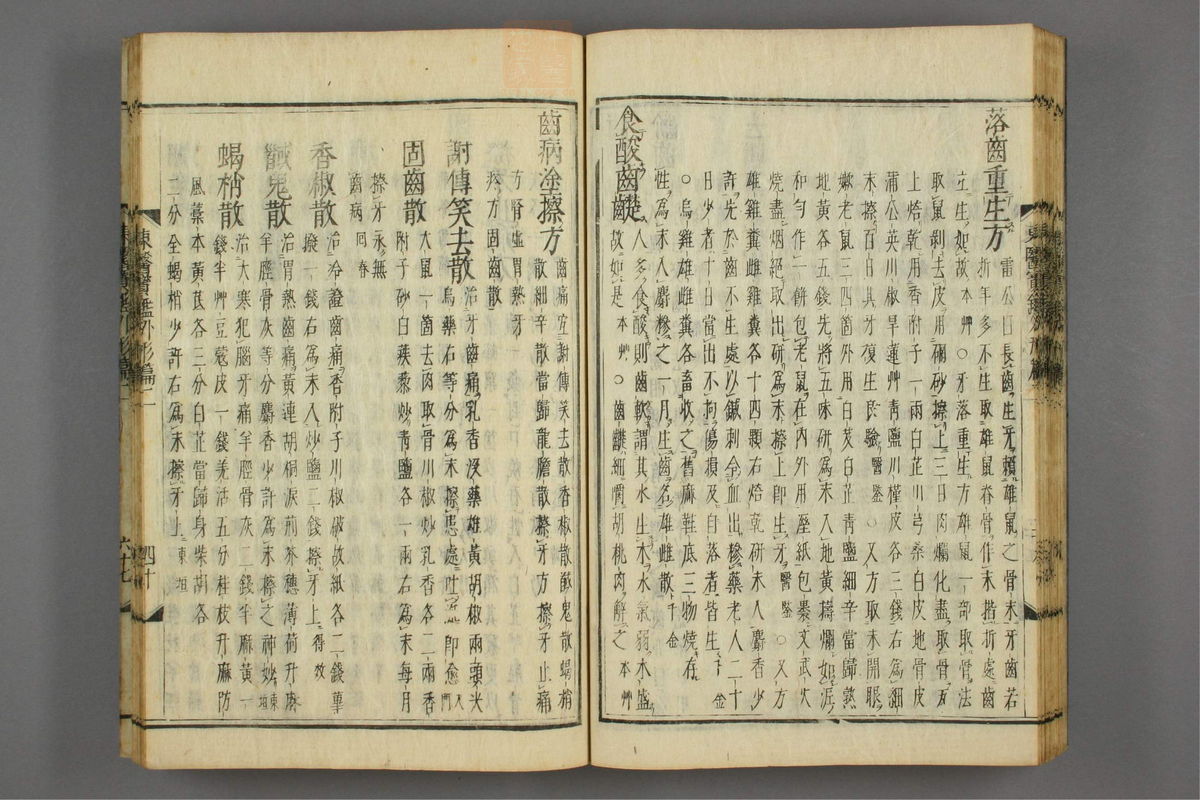 落齒重生方 雷公曰長齒生牙賴雄鼠之骨末牙齒若
折年多不生取雄鼠脊骨作末揩折處齒
立生如故本艸○牙落重生方雄鼠一部取骨法
取鼠剝去皮用硇砂擦上三日肉爛化盡取骨瓦
上焙乾用香附子一兩白芷川芎桑白皮地骨皮
蒲公英川椒旱蓮艸青鹽川槿皮各三錢右爲細
末擦百日其牙復生良驗醫鑒○又方取未開眼
嫩老鼠三四箇外用白芨白芷青鹽細辛當歸熟
地黃各五錢先將五味硏爲末入地黃擣爛如泥
和勻作一餠包老鼠在內外用溼紙包褁文武火
燒盡烟絕取出硏爲末擦上卽生牙醫鑒○又方
雄雞糞雌雞糞各十四顆右焙乾硏末入麝香少
許先於齒不生處以鍼刺令血出糝藥老人二十
日少者十日當出不拘傷損及自落者皆生千金
○烏雞雄雌糞各畜收之舊麻鞋底三物燒存
性爲末入麝糝之一月生齒名雄雌散千金
食酸齒齼 人多食酸則齒軟謂其水生木水氣弱木盛
齒故如是本艸○齒齼細嚼胡桃肉解之本艸
齒病塗擦方 齒痛宜謝傳笑去散香椒散馘鬼散蝎梢
散細辛散當歸龍膽散擦牙方擦牙止痛
方腎虛胃熱牙
疼方固齒散
謝傳笑去散 治牙齒痛乳香沒藥雄黃胡椒兩頭尖
烏藥右等分爲末擦患處吐涎卽愈入門
固齒散 大鼠一箇去肉取骨川椒炒乳香各二兩香
附子砂白蒺藜炒青鹽各一兩右爲末每月
擦牙永無
齒病回春
香椒散 治冷證齒痛香附子川椒破故紙各二錢蓽
撥一錢右爲末入炒鹽二錢擦牙上得效
馘鬼散 治胃熱齒痛黃連胡桐淚荊芥穗薄荷升麻
羊脛骨灰等分麝香少許爲末擦之神妙東垣
蝎梢散 治大寒犯腦牙痛羊脛骨灰二錢半麻黃一
錢半草豆蔻皮一錢羌活五分桂枝升麻防
風藁本黃芪各三分白芷當歸身柴胡各
二分全蝎梢少許右爲末擦牙上東垣
東醫寶鑑外形篇二
四十